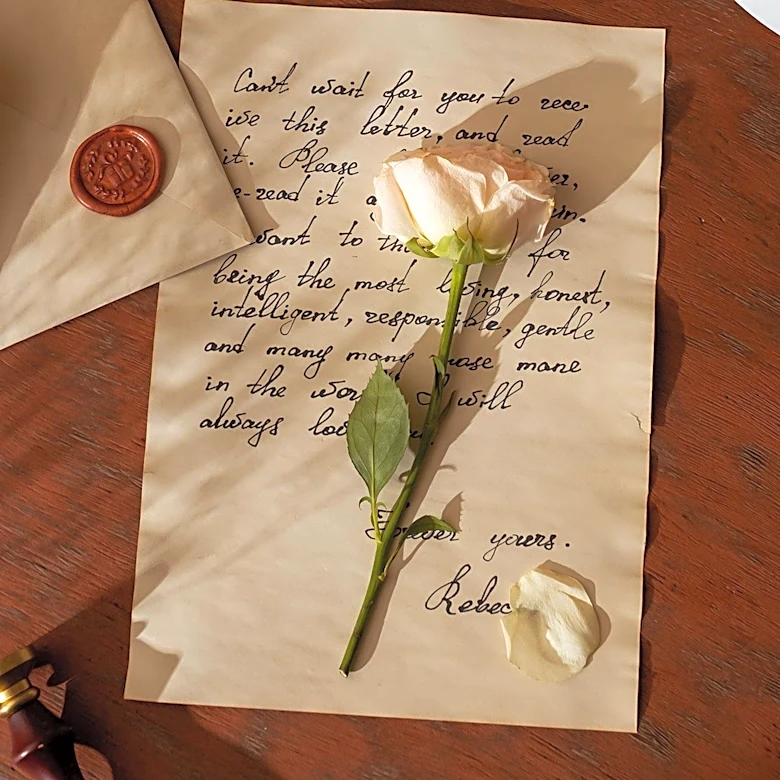 Can't wait for you to rece-
ive this letter, and read
it. Please
re-read it
want to for
being the most loving, honest,
intelligent, responsible, gentle
and many many mane
in the I will
always
Forever yours.
Rebec